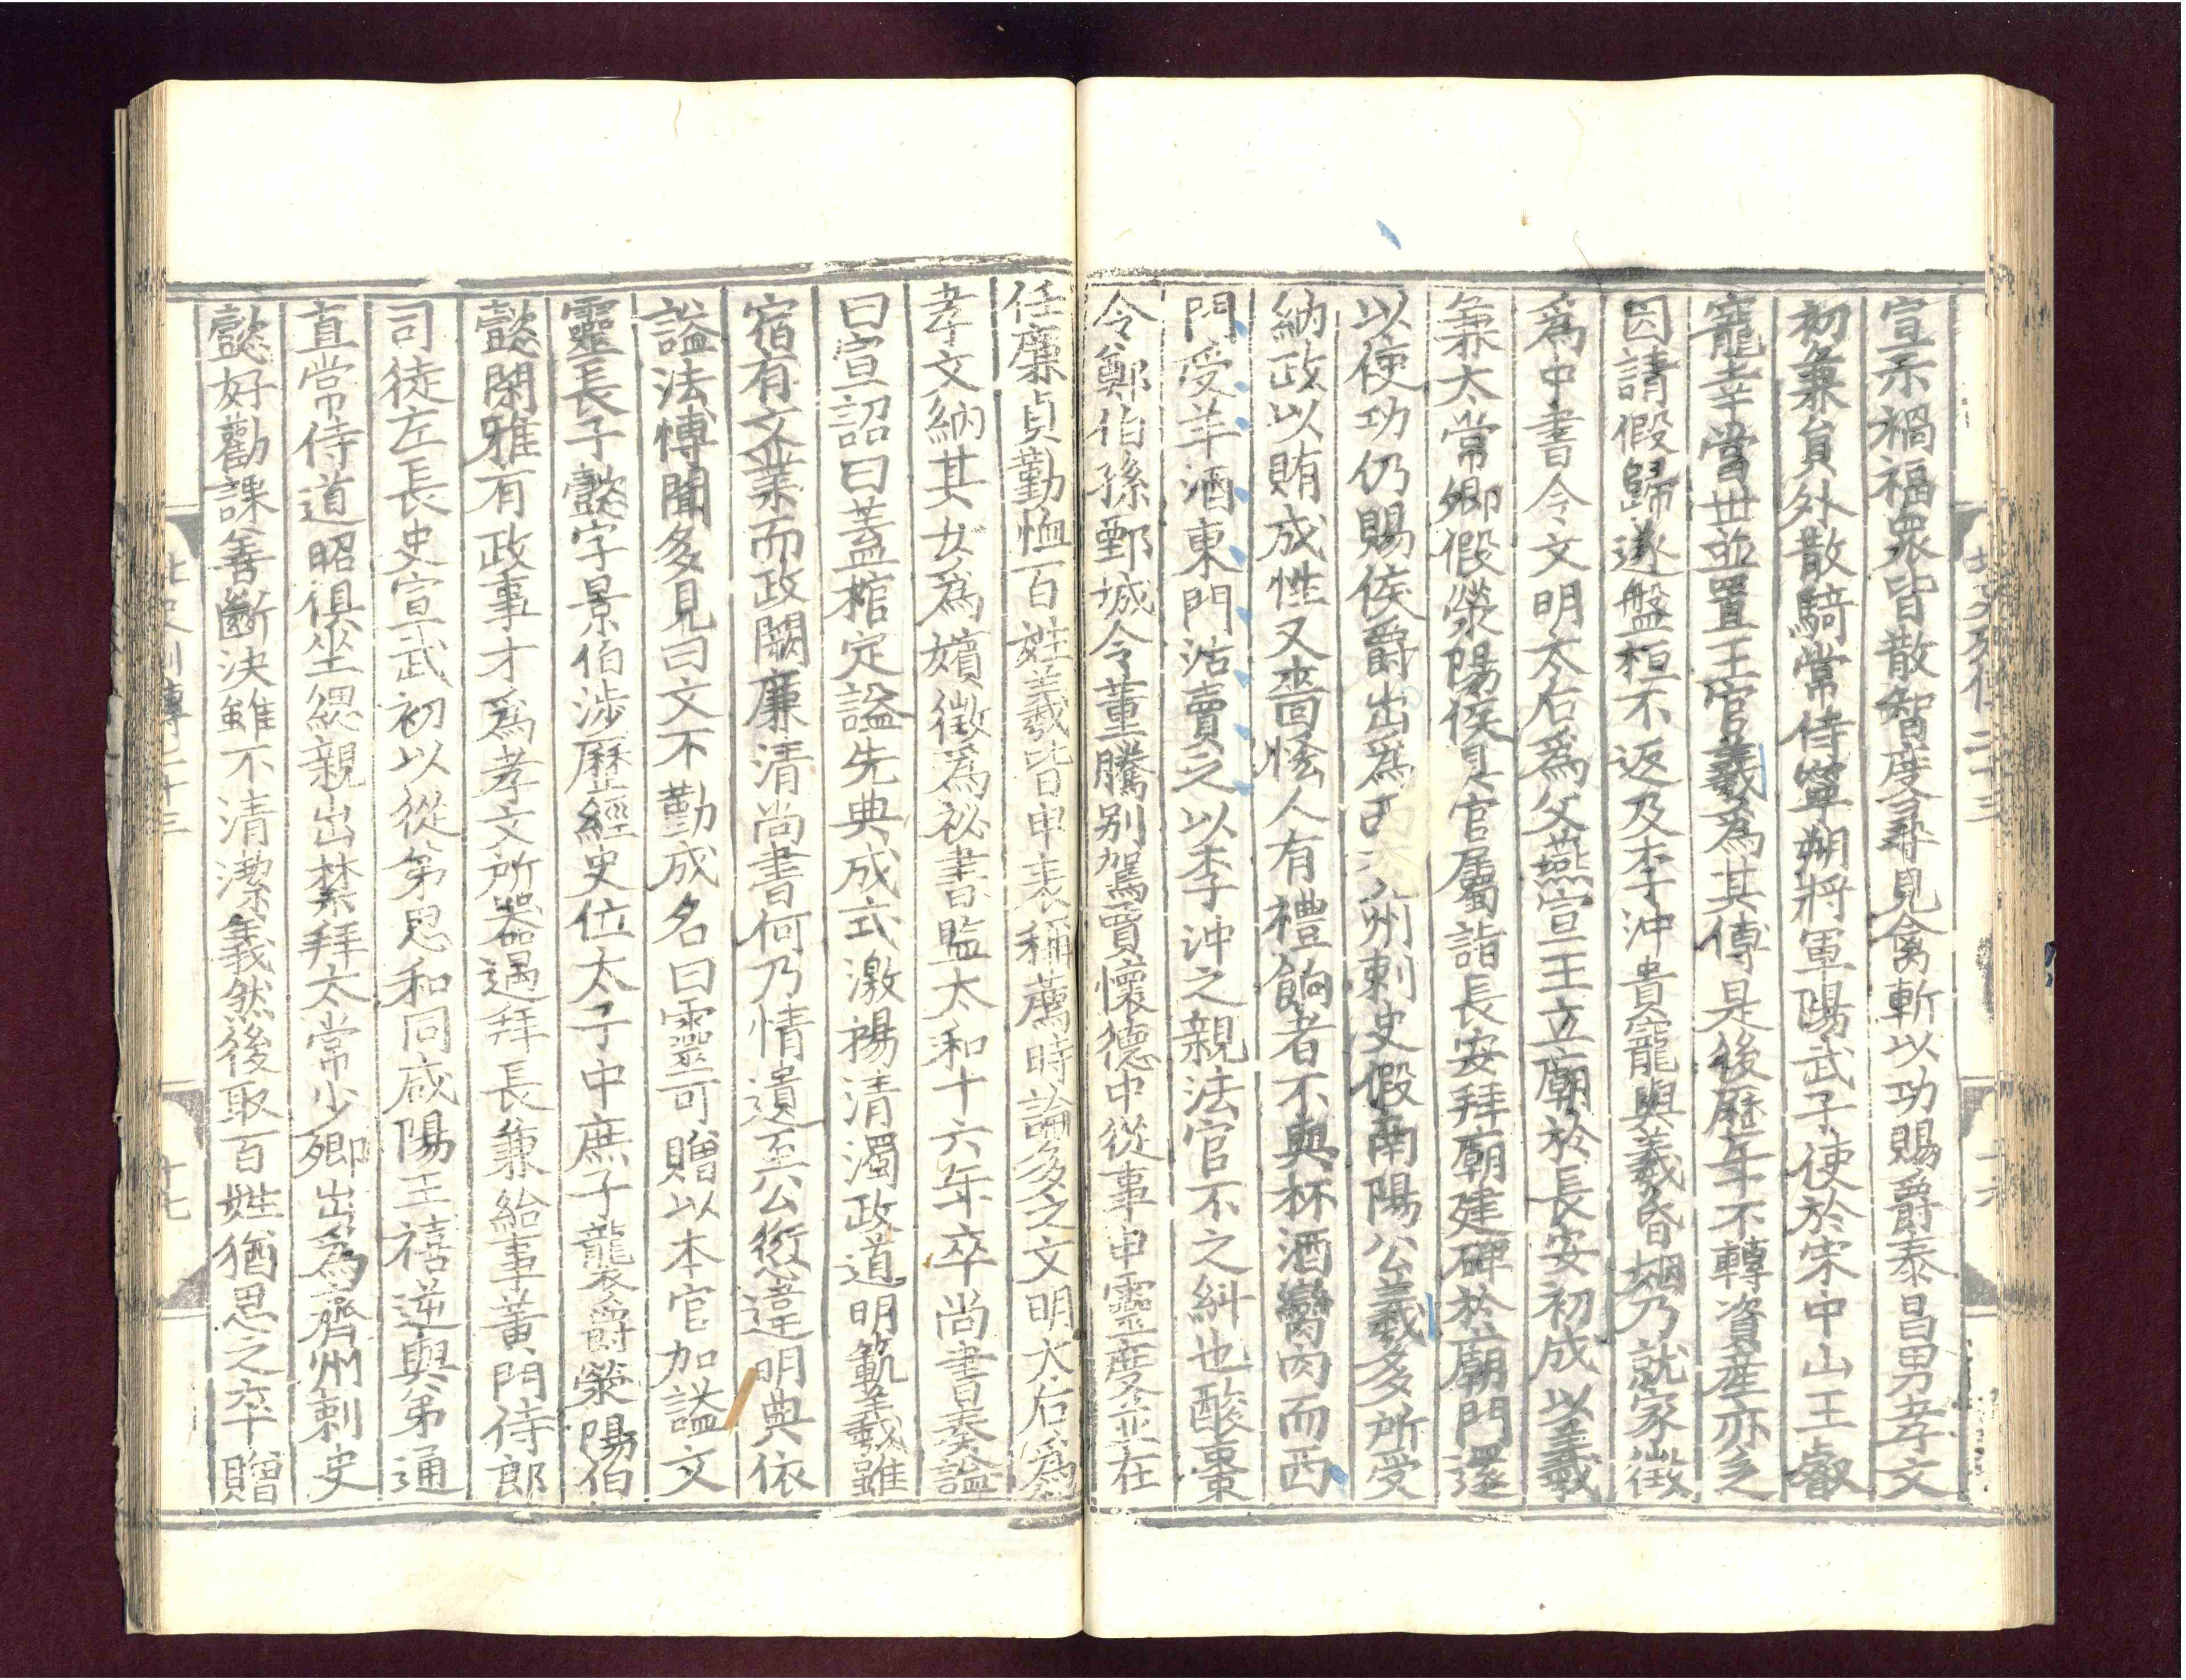 北史列傳二十三
十六
宣示禍福衆皆散智度尋見禽斬以功賜爵泰昌男孝文
初兼員外散騎常侍寧朔將軍陽武子使於宋中山王叡
寵幸當世並置王官羲爲其傅是後歷年不轉資產亦乏
因請假歸遂盤桓不返及李沖貴寵與羲昏姻乃就家徵
爲中書令文明太后爲父燕宣王立廟於長安初成以羲
兼太常卿假滎陽侯具官屬詣長安拜廟建碑於廟門還
以使功仍賜侯爵出爲西兗州刺史假南陽公羲多所受
納政以賄成性又嗇恡人有禮餉者不與杯酒臠肉而西
門受羊酒東門沽賣之以李沖之親法官不之糾也酸棗
令鄭伯孫鄄城令董騰別駕賈懷德中從事申靈度並在
任廉貞勤恤百姓羲皆申表稱薦時論多之文明太后爲
孝文納其女爲嬪徵爲祕書監太和十六年卒尚書奏謚
曰宣詔曰蓋棺定謚先典成式激揚清濁政道明範羲雖
宿有文業而政闕廉清尚書何乃情遺至公愆違明典依
謚法博聞多見曰文不勤成名曰靈可贈以本官加謚文
靈長子懿字景伯涉歷經史位太子中庶子襲爵滎陽伯
懿閑雅有政事才爲孝文所器遇拜長兼給事黃門侍郎
司徒左長史宣武初以從弟思和同咸陽王禧逆與弟通
直常侍道昭俱坐緦親出禁拜太常少卿出爲齊州刺史
懿好勸課善斷決雖不清潔義然後取百姓猶思之卒贈
北史列傳二十三
十七